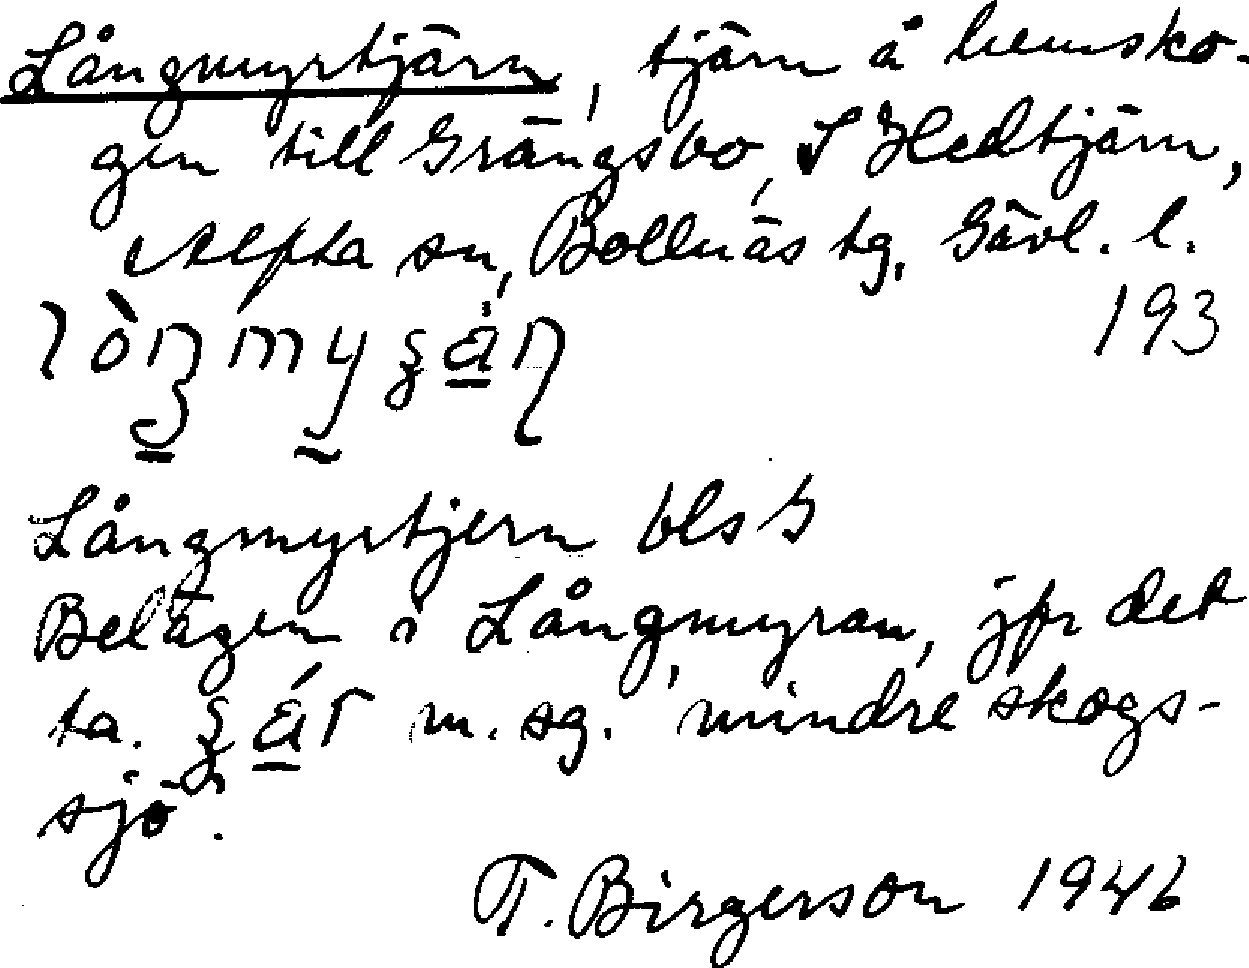 Långmyrtjärn, tjärn å hemsko-
gen till Grängsbo, S Hedtjärn,
Alfta sn, Bollnäs tg, Gävl. l.
193
Långmyrtjern bls G
Belägen i Långmyran, jfr det
ta. m. sg. 'mindre skogs-
sjö'.
T. Birgerson 1946